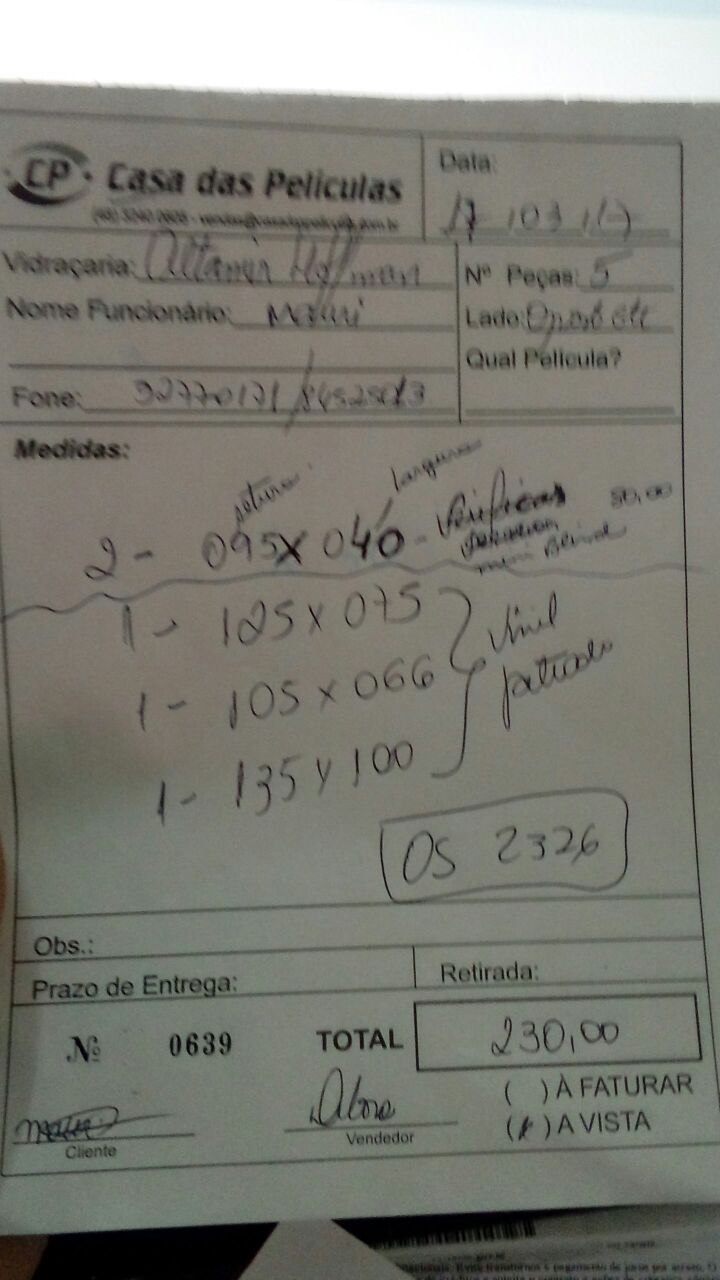 CP Casa das Películas
Data:
17 / 03 / 17
Vidraçaria: Altamir Hoffman
Nº Peças: 5
Nome Funcionário: Mauri
Lado:
Qual Película?
Fone: 92770171 /
Medidas:
altura largura
2 - 095 x 040 - Verificar 50,00
mini Blind
1 - 125 x 075
Vinil
1 - 105 x 066
jateado
1 - 135 x 100
OS 2326
Obs.:
Prazo de Entrega:
Retirada:
Nº 0639 TOTAL 230,00
( ) À FATURAR
( ) A VISTA
Cliente
Vendedor